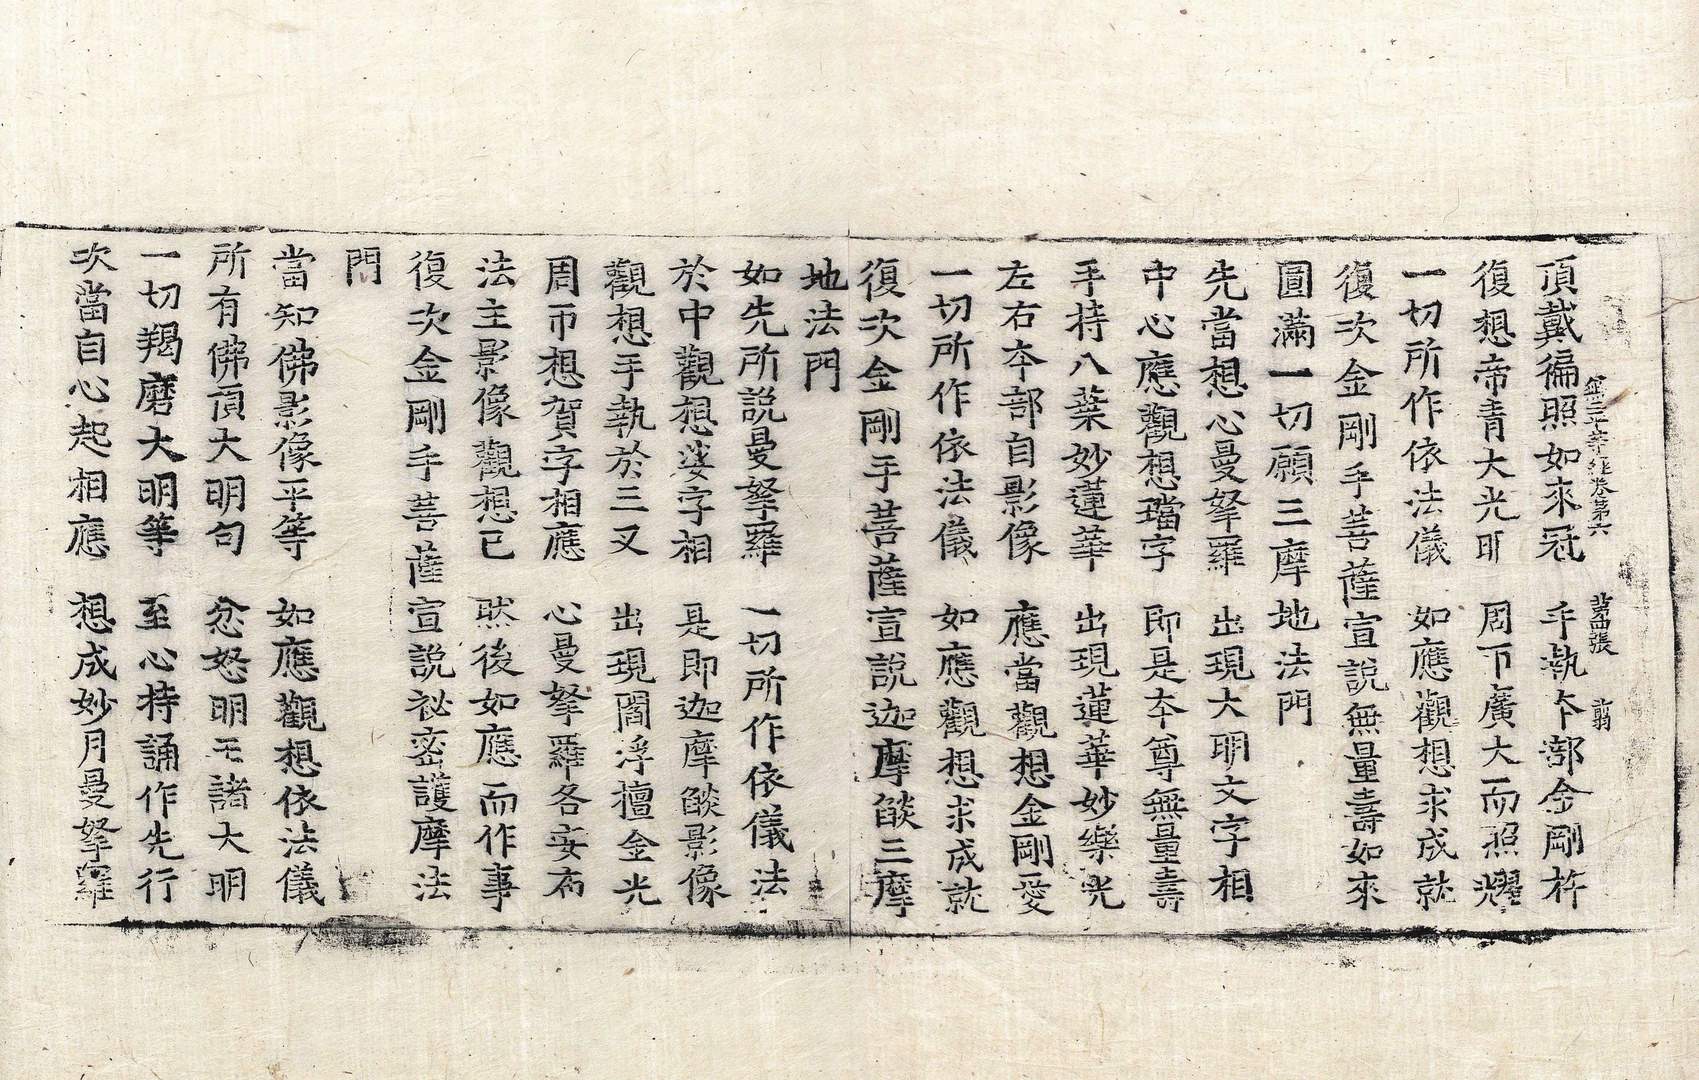 頂戴徧照如來冠　手執本部金剛杵
復想帝青大光明　周帀廣大而照耀
一切所作依法儀　如應觀想求成就
復次金剛手菩薩宣說無量壽如來
圓滿一切願三摩地法門
先當想心曼拏羅　出現大明文字相
中心應觀想璫字　即是本尊無量壽
手持八葉妙蓮華　出現蓮華妙樂光
左右本部自影像　應當觀想金剛愛
一切所作依法儀　如應觀想求成就
復次金剛手菩薩宣說迦摩燄三摩
地法門
如先所說曼拏羅　一切所作依儀法
於中觀想娑字相　是即迦摩燄影像
觀想手執於三叉　出現閻浮檀金光
周帀想賀字相應　心曼拏羅各安布
法主影像觀想已　然後如應而作事
復次金剛手菩薩宣說祕密護摩法
門
當知佛影像平等　如應觀想依法儀
所有佛頂大明句　忿怒明王諸大明
一切羯磨大明等　至心持誦作先行
次當自心起相應　想成妙月曼拏羅